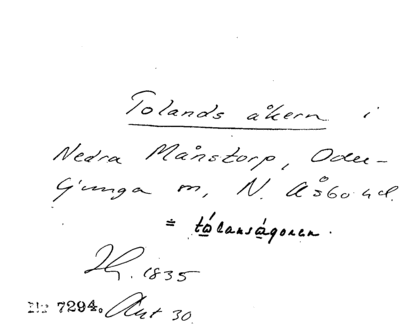 Tolands åkern i
Nedra Månstorp, Oder-
ljunga m, N. Åsbo hd.
= tålansågoren.
Hg. 1835
No 7294. Ant 30